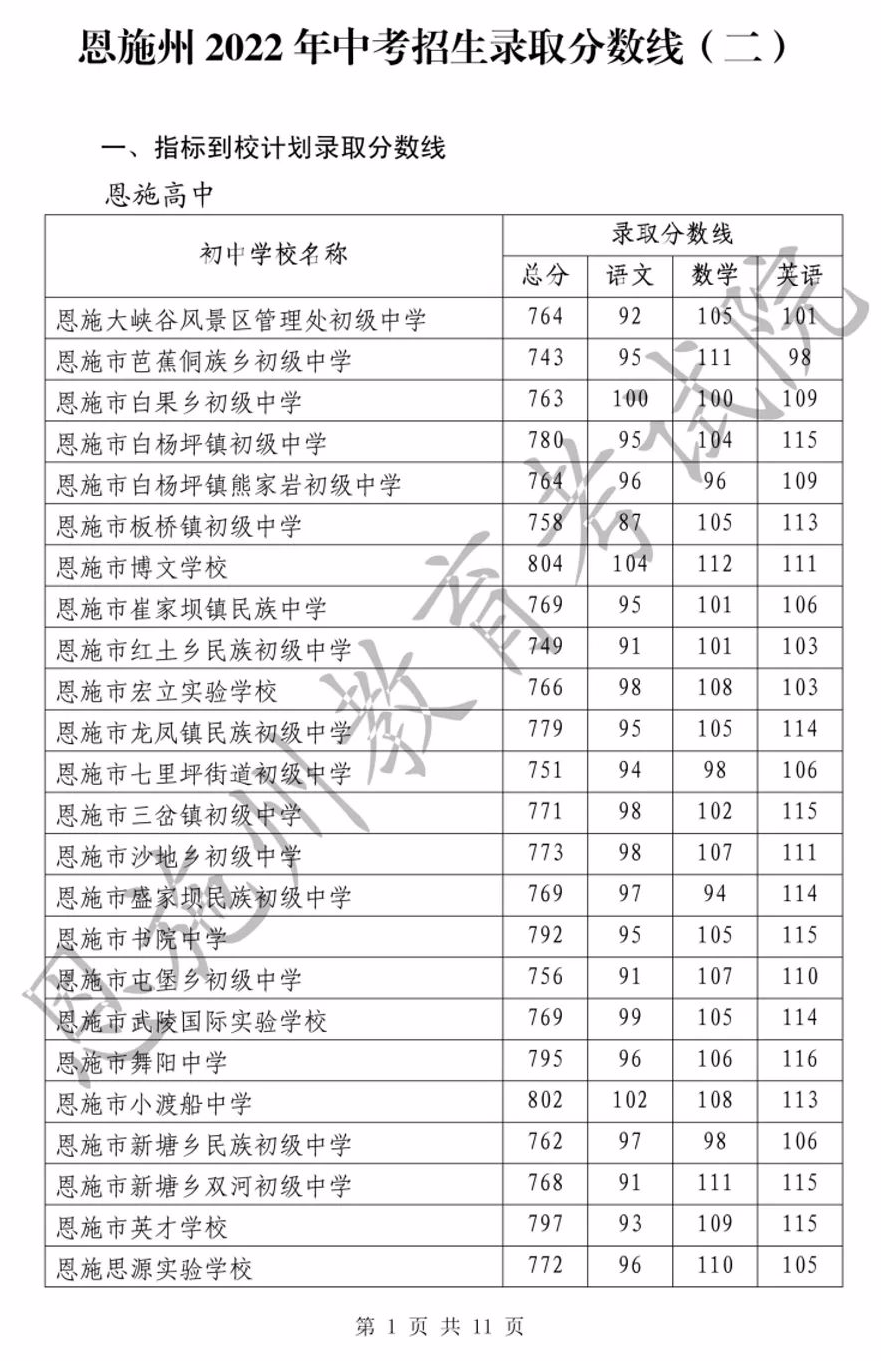 恩施州 2022 年中考招生录取分数线（二）
一、指标到校计划录取分数线
恩施高中
初中学校名称 录取分数线
总分 语文 数学 英语
恩施大峡谷风景区管理处初级中学 764 92 105 101
恩施市芭蕉侗族乡初级中学 743 95 111 98
恩施市白果乡初级中学 763 100 100 109
恩施市白杨坪镇初级中学 780 95 104 115
恩施市白杨坪镇熊家岩初级中学 764 96 96 109
恩施市板桥镇初级中学 758 87 105 113
恩施市博文学校 804 104 112 111
恩施市崔家坝镇民族中学 769 95 101 106
恩施市红土乡民族初级中学 749 91 101 103
恩施市宏立实验学校 766 98 108 103
恩施市龙凤镇民族初级中学 779 95 105 114
恩施市七里坪街道初级中学 751 94 98 106
恩施市三岔镇初级中学 771 98 102 115
恩施市沙地乡初级中学 773 98 107 111
恩施市盛家坝民族初级中学 769 97 94 114
恩施市书院中学 792 95 105 115
恩施市屯堡乡初级中学 756 91 107 110
恩施市武陵国际实验学校 769 99 105 114
恩施市舞阳中学 795 96 106 116
恩施市小渡船中学 802 102 108 113
恩施市新塘乡民族初级中学 762 97 98 106
恩施市新塘乡双河初级中学 768 91 111 115
恩施市英才学校 797 93 109 115
恩施思源实验学校 772 96 110 105
第 1 页 共 11 页
恩施州教育考试院